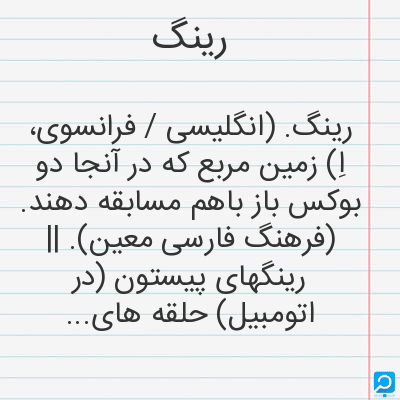 رینگ
رینگ. (انگلیسی / فرانسوی،
اِ) زمین مربع که در آنجا دو
بوکس باز باهم مسابقه دهند.
(فرهنگ فارسی معین). ||
رینگهای پیستون (در
اتومبیل) حلقه های...